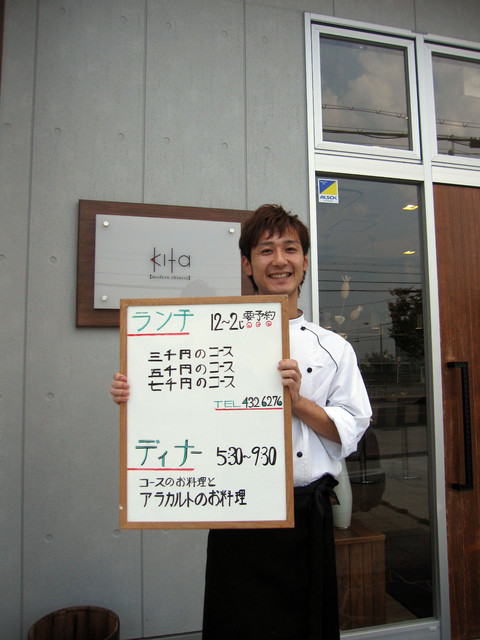 ALSOK
kita
【modern chinois】
ランチ 12〜2じ 要予約
三千円のコース
五千円のコース
七千円のコース
TEL 432 6276
ディナー 5:30〜9:30
コースのお料理と
アラカルトのお料理